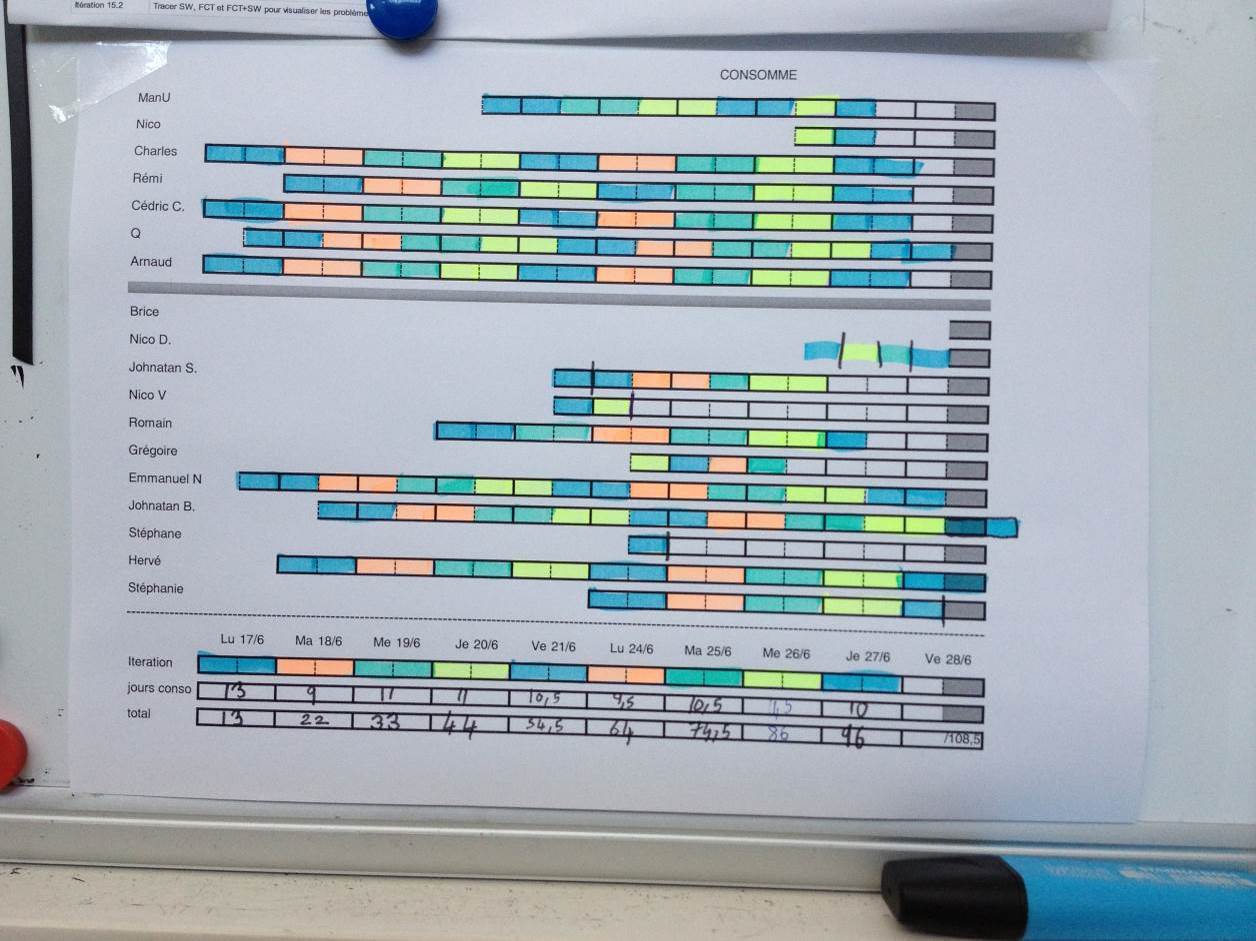 Itération 15.2 Tracer SW, FCT et FCT+SW pour visualiser les problème
CONSOMME
ManU
Nico
Charles
Rémi
Cédric C.
Q
Arnaud
Brice
Nico D.
Johnatan S.
Nico V
Romain
Grégoire
Emmanuel N
Johnatan B.
Stéphane
Hervé
Stéphanie
Lu 17/6 Ma 18/6 Me 19/6 Je 20/6 Ve 21/6 Lu 24/6 Ma 25/6 Me 26/6 Je 27/6 Ve 28/6
Iteration
jours conso 13 9 11 11 10,5 9,5 10,5 10
total 13 22 33 44 54,5 64 74,5 86 96 /108,5